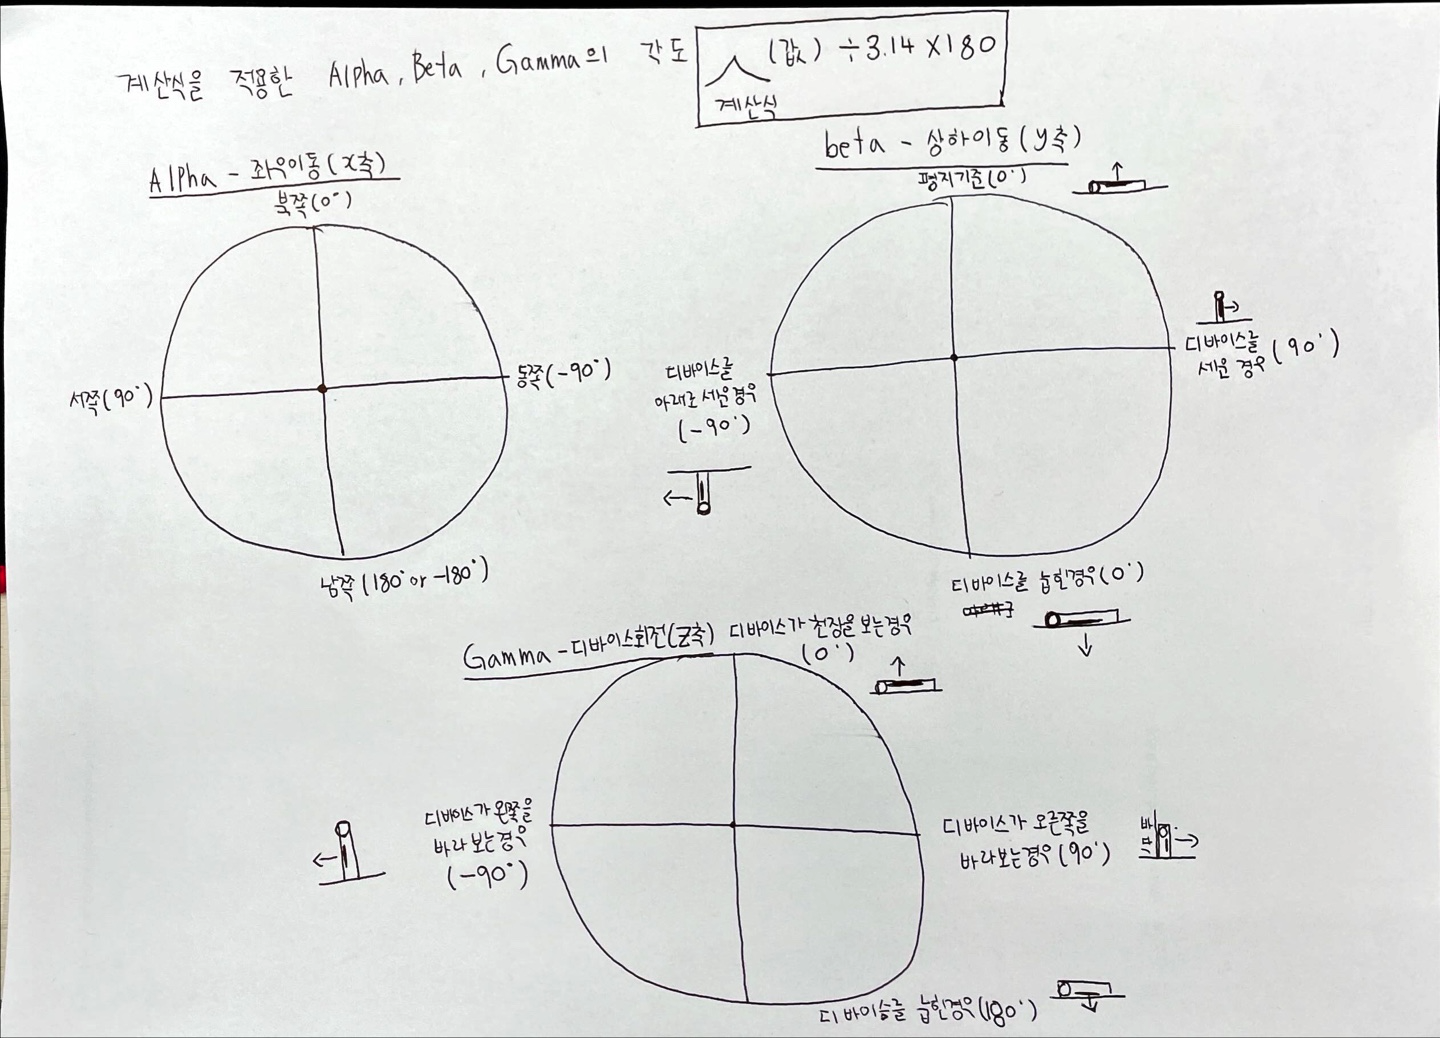 계산식을 적용한 Alpha, Beta, Gamma의 각도
(값) ÷3.14 X180
계산식
Alpha - 좌우이동(x축)
북쪽(0°)
서쪽(90°)
동쪽(-90°)
남쪽(180° or -180°)
beta - 상하이동(y축)
평지기준(0°)
디바이스를
세운 경우(90°)
디바이스를
아래로 세운경우
(-90°)
디바이스를 눕힌경우(0°)
Gamma - 디바이스회전(Z축)
디바이스가 천장을 보는경우
(0°)
디바이스가 왼쪽을
바라보는경우
(-90°)
디바이스가 오른쪽을
바라보는경우(90°)
바닥
디바이승를 눕힌경우(180°)